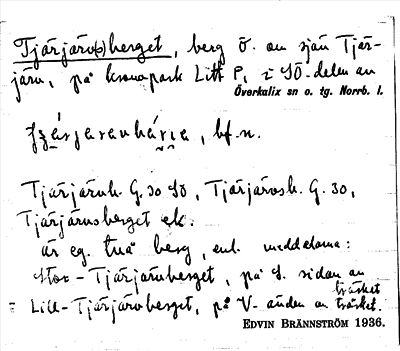 Tjärjärv(s)berget, berg Ö. om sjön Tjär-
järv, på kronopark Litt P, i SÖ-delen av
Överkalix sn o. tg. Norrb. l.
bf. n.
Tjärjärvh. G. 30 SÖ, Tjärjärvsh. G. 30,
Tjärjärvsberget ek.
är eg. två berg, enl. meddelarna:
Stor-Tjärjärvberget, på S. sidan av
träsket
= Lill-Tjärjärvberget, på V-änden av träsket.
EDVIN BRÄNNSTRÖM 1936.